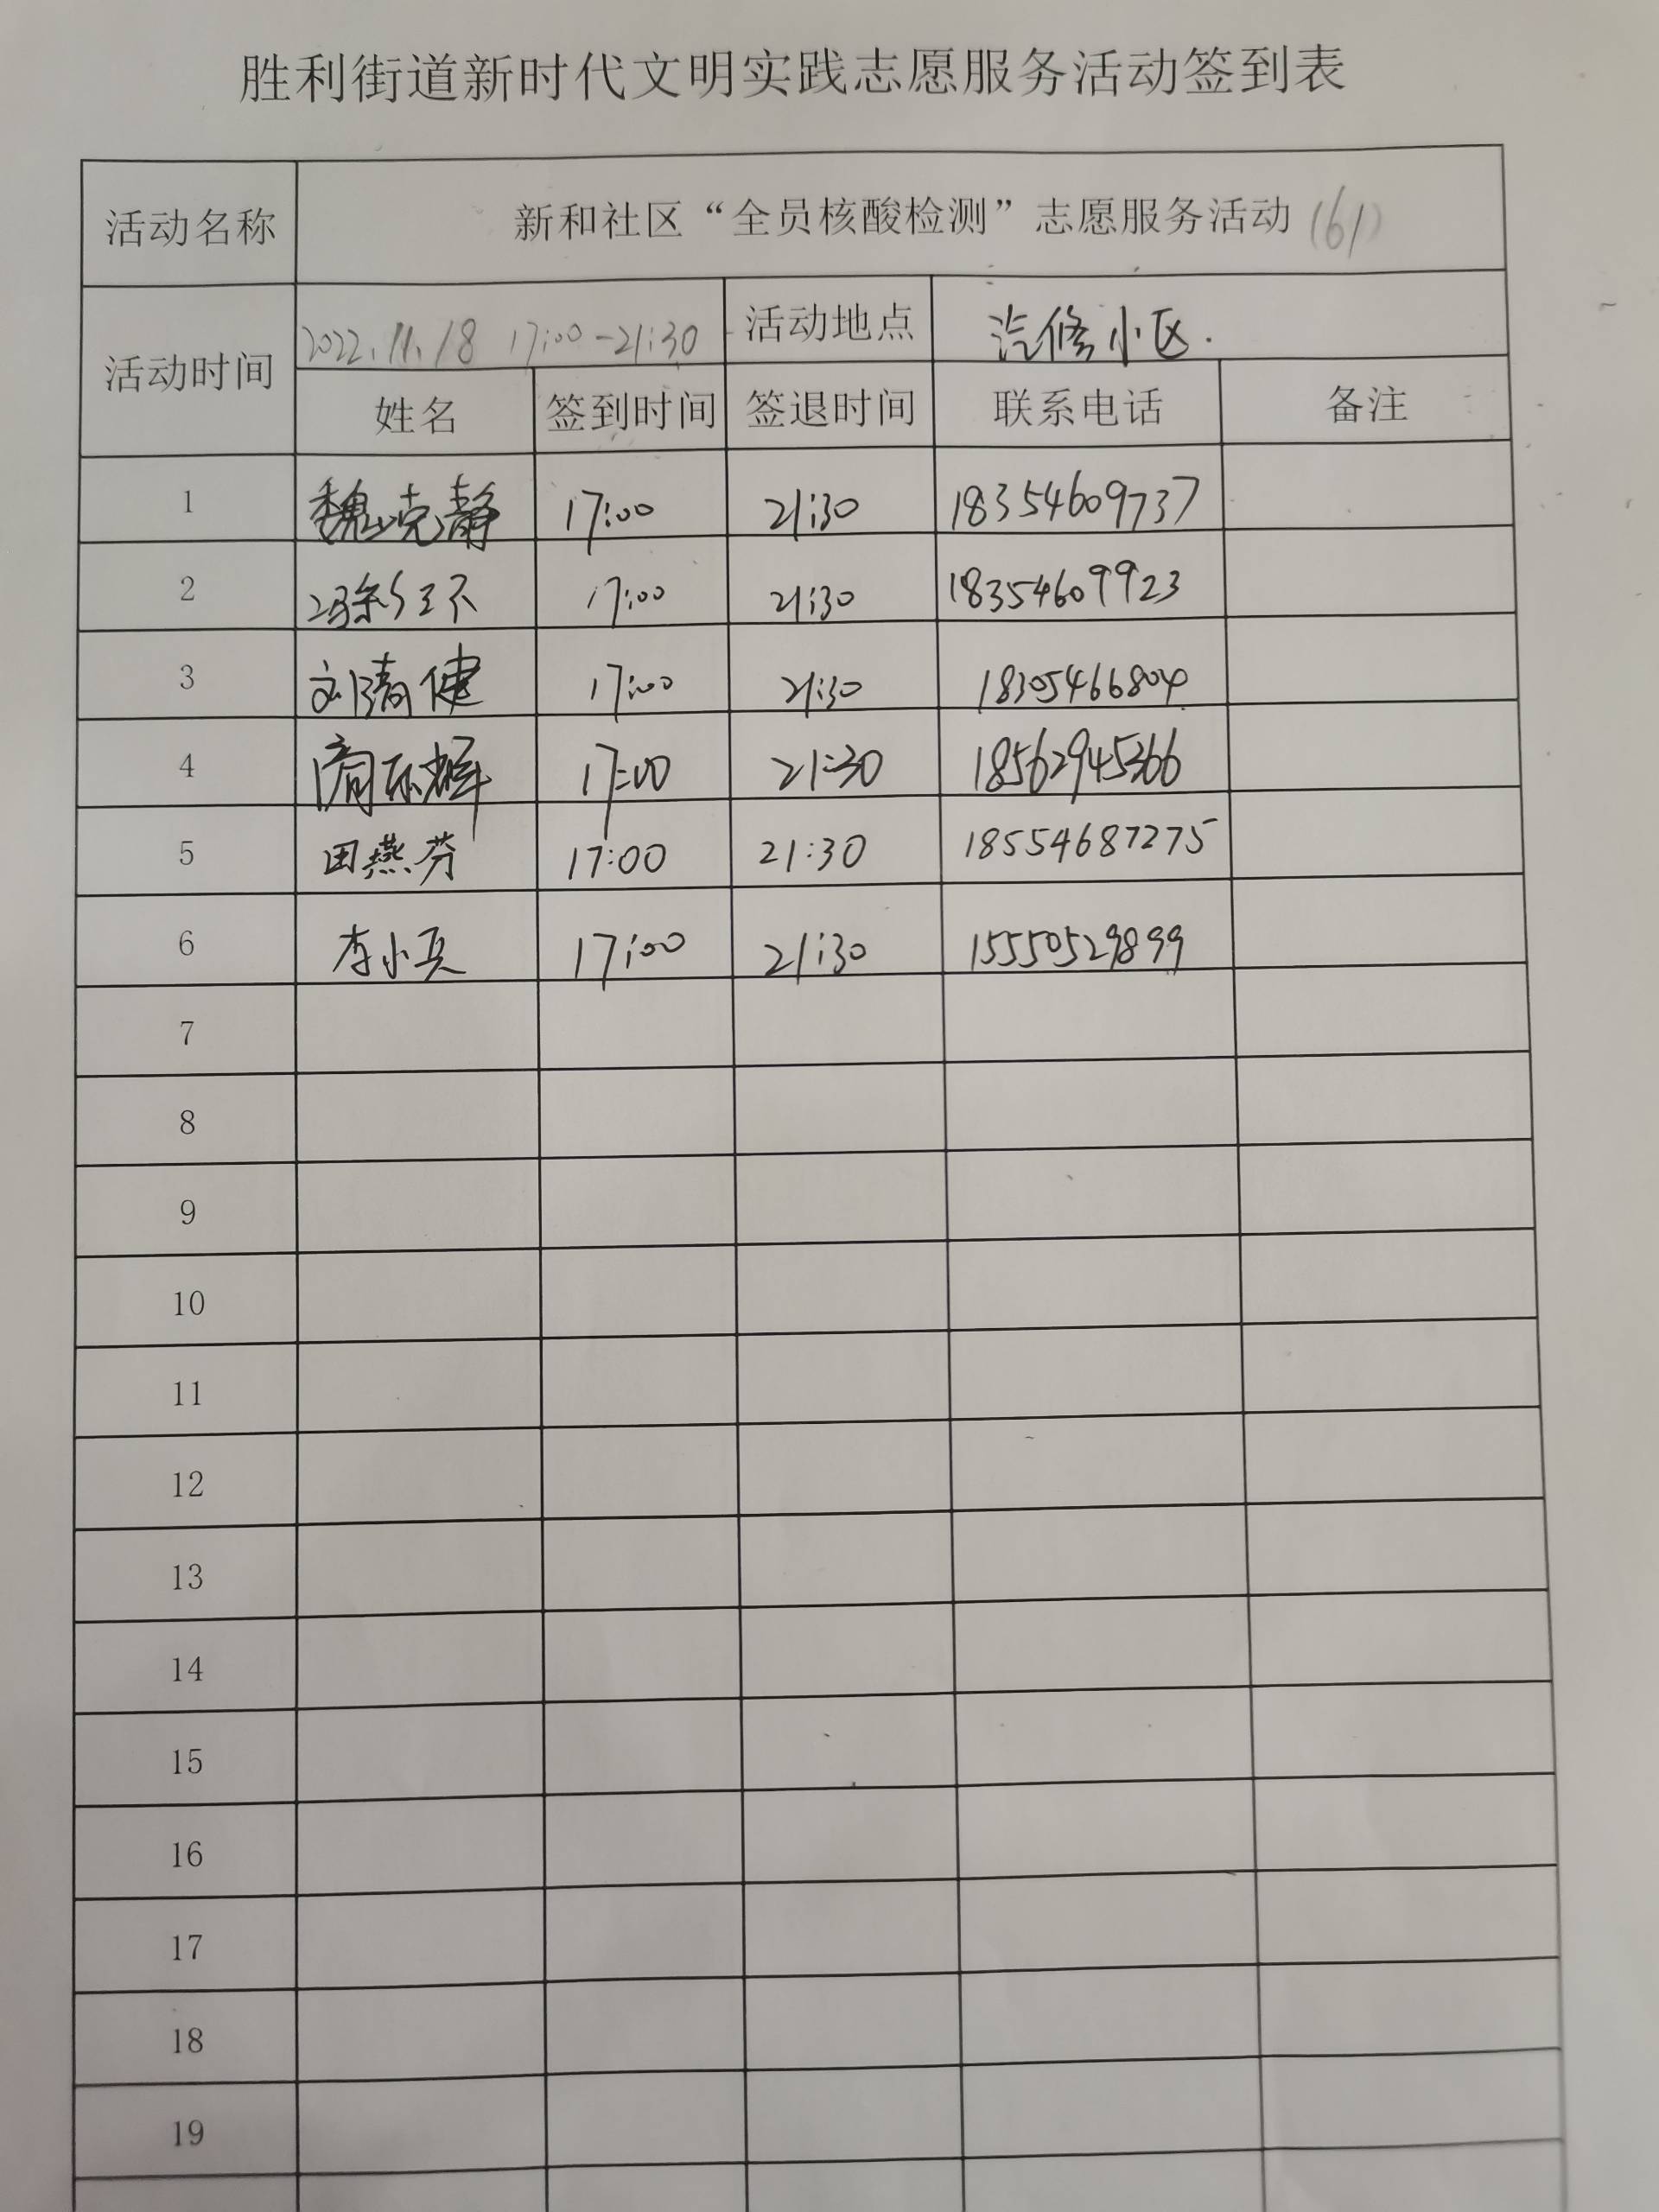 胜利街道新时代文明实践志愿服务活动签到表
活动名称 新和社区“全员核酸检测”志愿服务活动(61)
活动时间 2022.11.18 17:00-21:30 活动地点 汽修小区.
姓名 签到时间 签退时间 联系电话 备注
1 魏晓静 17:00 21:30 18354609737
2 17:00 21:30 18354609923
3 刘清健 17:00 21:30 18305466804
4 17:00 21:30 18562945366
5 田燕芬 17:00 21:30 18554687275
6 李小兵 17:00 21:30 15550529899
7
8
9
10
11
12
13
14
15
16
17
18
19